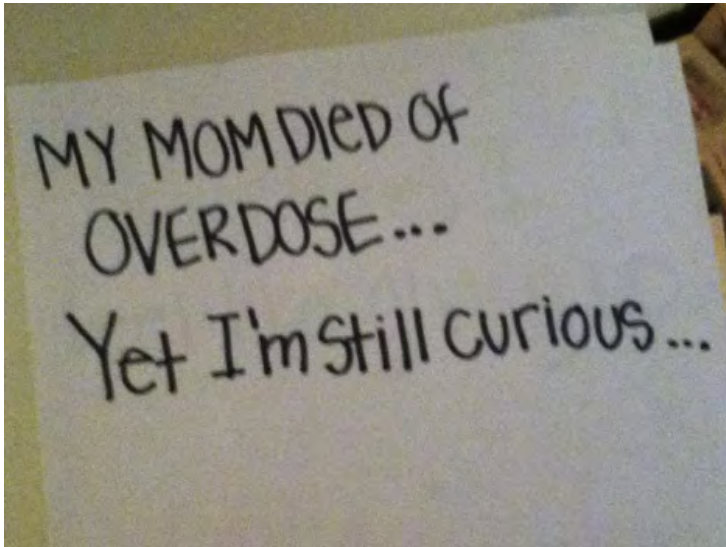 MY MOM DIED OF
OVERDOSE...
Yet I'm still curious...